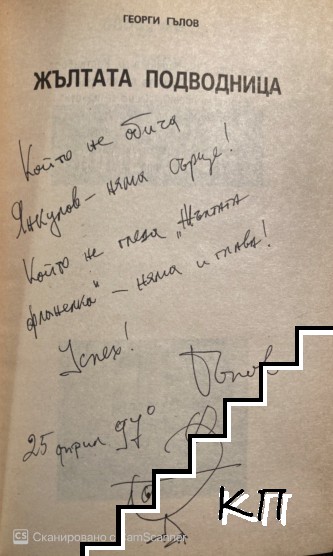 ГЕОРГИ ГЪЛОВ
ЖЪЛТАТА ПОДВОДНИЦА
Който не обича
Янкулов – няма сърце!
Който не гледа „Жълтата
фланелка“ – няма и глава!
Успех!
25 април 97°
КП
CS Сканировано с CamScanner